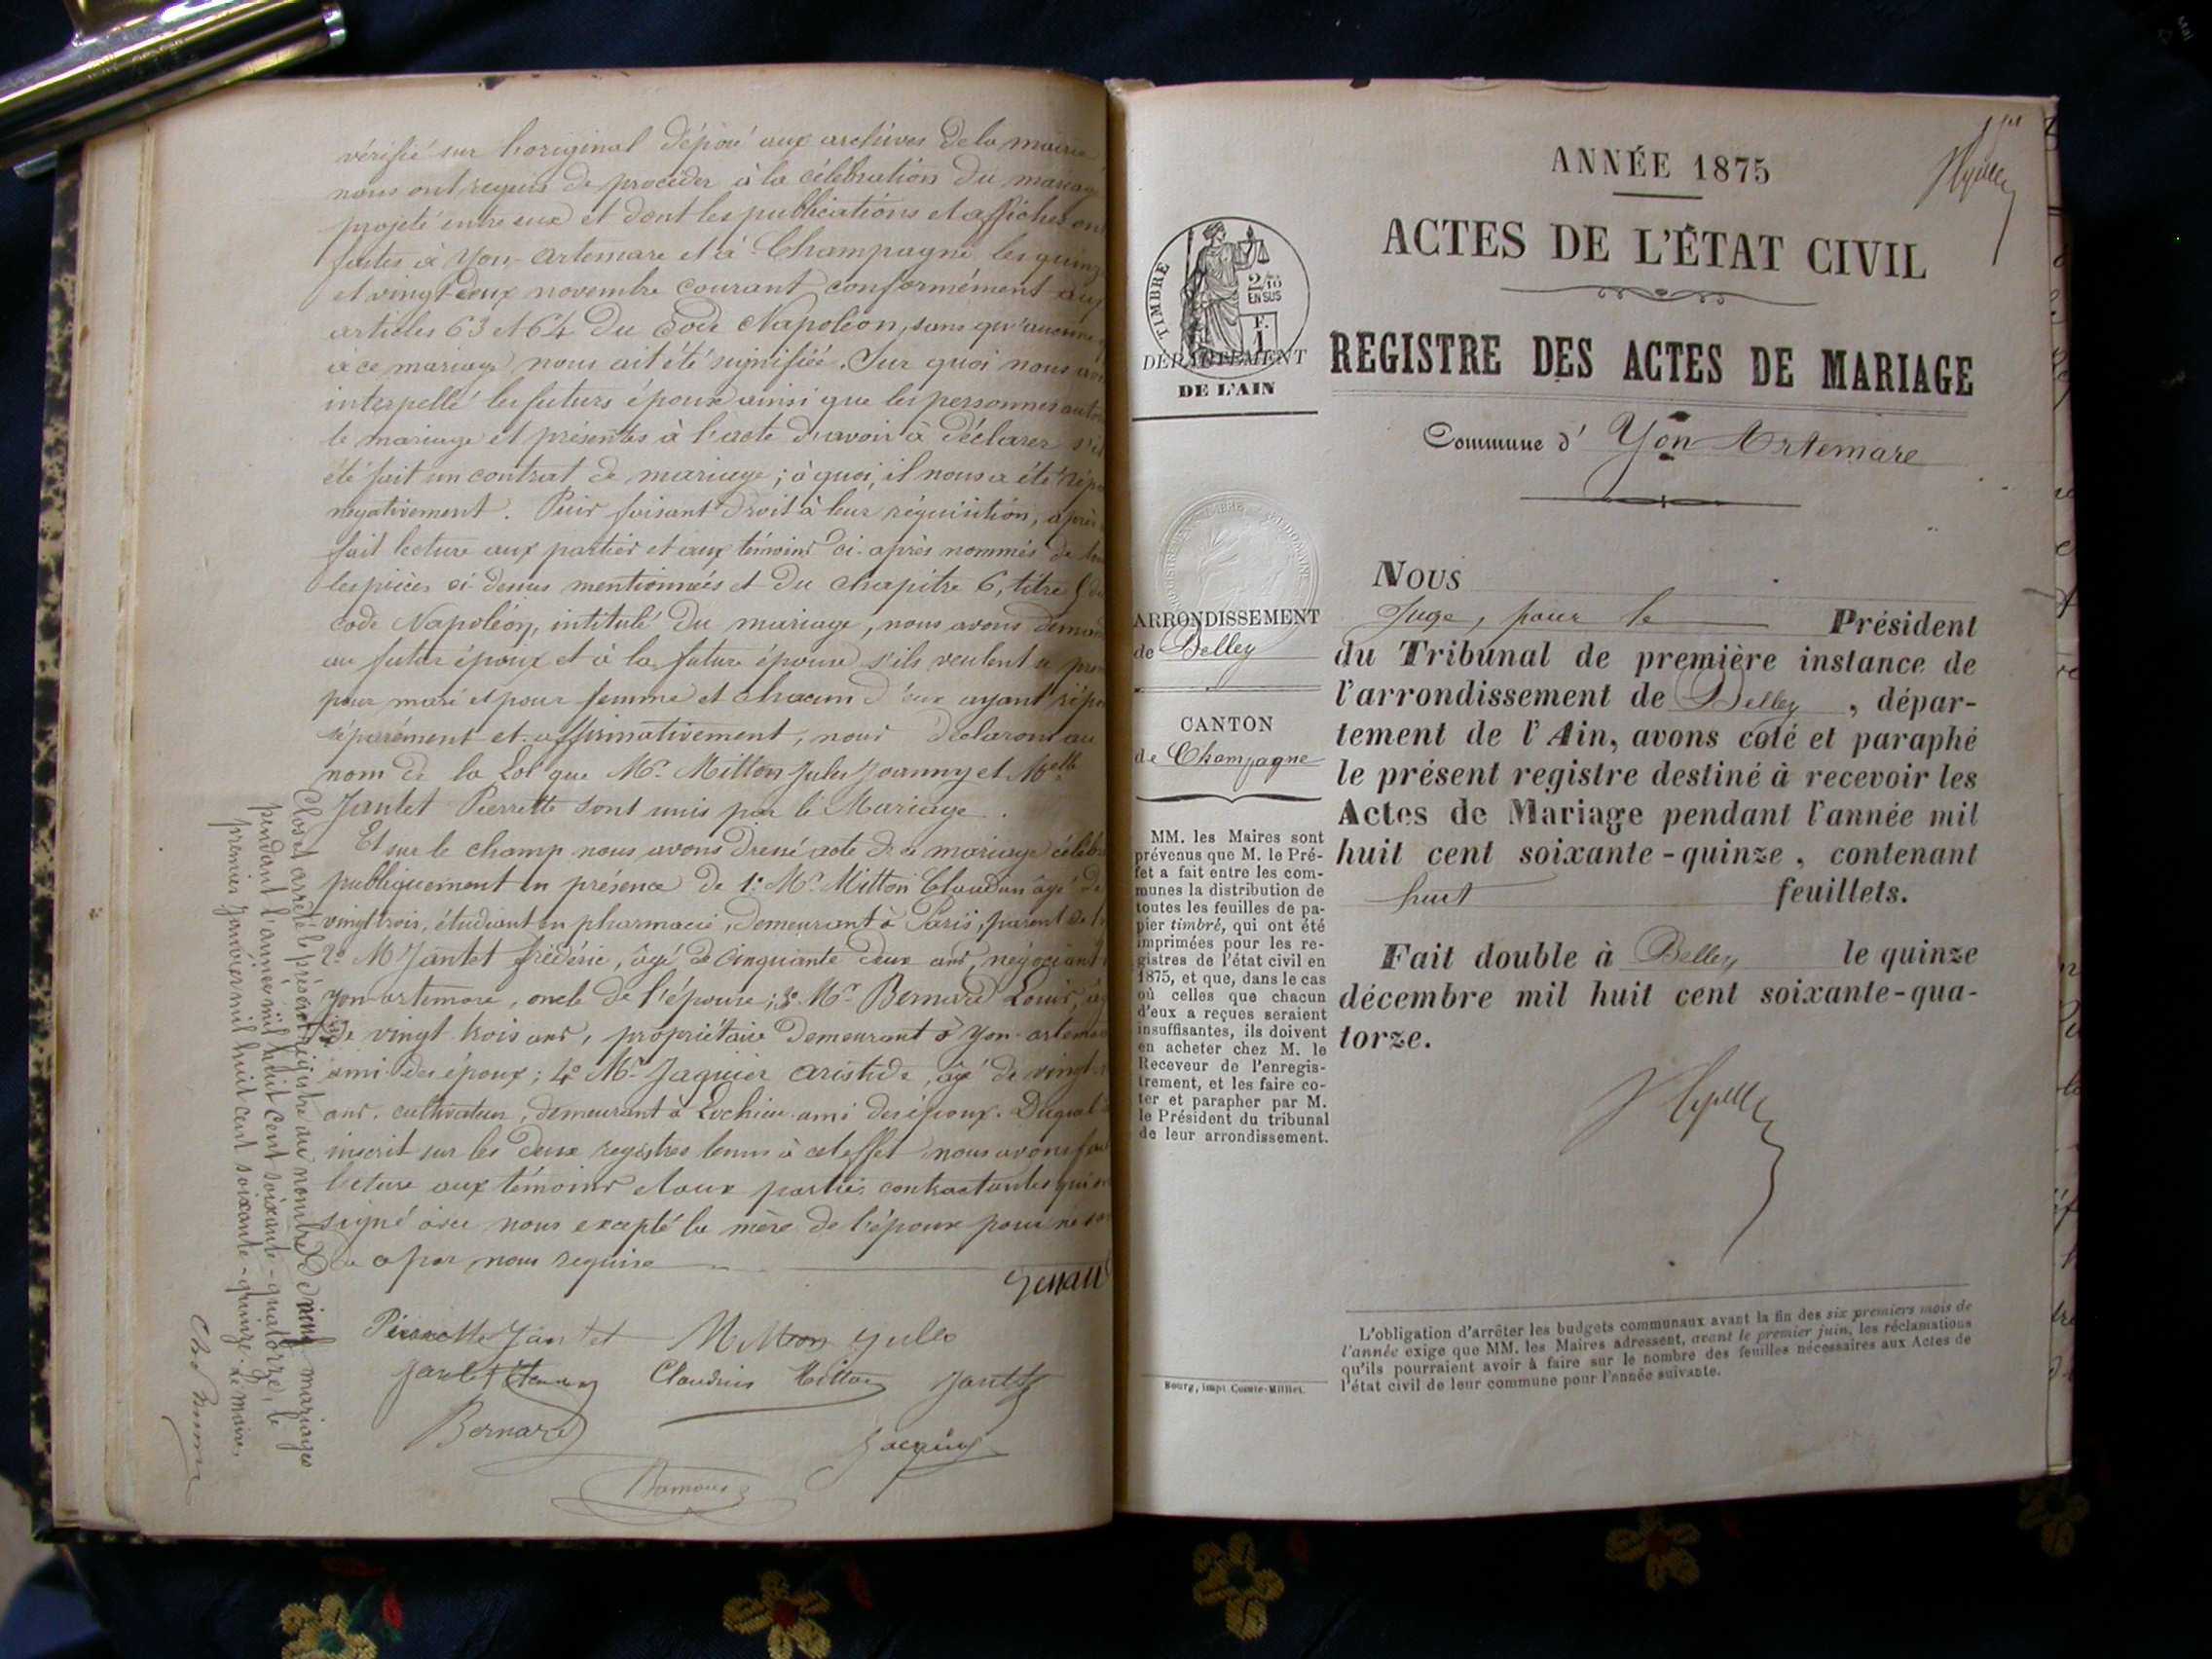 vérifié sur l'original déposé aux archives de la mairie
nous ont requis de procéder à la célébration du mariage
projeté entre eux et dont les publications et affiches ont
faites à Yon-Artemare et à Champagne les quinze
et vingt-deux novembre courant conformément aux
articles 63 et 64 du Code Napoléon, sans qu'aucune
à ce mariage nous ait été signifiée. Sur quoi nous avons
interpellé les futurs époux ainsi que les personnes
le mariage et présentes à l'acte d'avoir à déclarer s'il
été fait un contrat de mariage ; à quoi, il nous a été
négativement. Puis faisant droit à leur réquisition, après
fait lecture aux parties et aux témoins ci-après nommés de
les pièces ci-dessus mentionnées et du chapitre 6, titre 5 du
code Napoléon, intitulé du mariage, nous avons
au futur époux et à la future épouse s'ils veulent se
pour mari et pour femme et chacun d'eux ayant
séparément et affirmativement, nous déclarons au
nom de la Loi que Mr. Mitton Jules Joanny et Melle
Jantet Pierrette sont unis par le Mariage.
Et sur le champ nous avons dressé acte de ce mariage célébré
publiquement en présence de 1° Mr. Mitton Claudius âgé de
vingt trois, étudiant en pharmacie, demeurant à Paris, parent de
2° M Jantet frédéric, âgé de cinquante deux ans, négociant
Yon-artemare, oncle de l'épouse ; 3° Mr. Bernard Louis,
de vingt trois ans, propriétaire demeurant à Yon-artemare
ami des époux ; 4° Mr. Jaquier aristide, âgé de vingt
ans, cultivateur, demeurant à Lochieu ami des époux. Duquel
inscrit sur les deux registres tenus à cet effet nous avons
lecture aux témoins et aux parties contractantes qui
signé avec nous excepté la mère de l'époux pour ne
de a par nous requise
Pierrette Jantet Mitton Jules
Jantet Claudius Mitton Jantet
Bernard Jacquier
Clos et arrêté le présent registre au nombre de mariages
pendant l'année mil huit cent soixante-quatorze, le
premier janvier mil huit cent soixante-quinze. Le maire,
ANNÉE 1875
ACTES DE L'ÉTAT CIVIL
REGISTRE DES ACTES DE MARIAGE
Commune d' Yon Artemare
TIMBRE
2/10
EN SUS
F.
1
DÉPARTEMENT
DE L'AIN
ARRONDISSEMENT
de Belley
CANTON
de Champagne
MM. les Maires sont
prévenus que M. le Pré-
fet a fait entre les com-
munes la distribution de
toutes les feuilles de pa-
pier timbré, qui ont été
imprimées pour les re-
gistres de l'état civil en
1875, et que, dans le cas
où celles que chacun
d'eux a reçues seraient
insuffisantes, ils doivent
en acheter chez M. le
Receveur de l'enregis-
trement, et les faire co-
ter et parapher par M.
le Président du tribunal
de leur arrondissement.
Bourg, impr. Comte-Milliet.
NOUS
Juge, pour le Président
du Tribunal de première instance de
l'arrondissement de Belley, dépar-
tement de l'Ain, avons coté et paraphé
le présent registre destiné à recevoir les
Actes de Mariage pendant l'année mil
huit cent soixante-quinze, contenant
huit feuillets.
Fait double à Belley le quinze
décembre mil huit cent soixante-qua-
torze.
L'obligation d'arrêter les budgets communaux avant la fin des six premiers mois de
l'année exige que MM. les Maires adressent, avant le premier juin, les réclamations
qu'ils pourraient avoir à faire sur le nombre des feuilles nécessaires aux Actes de
l'état civil de leur commune pour l'année suivante.